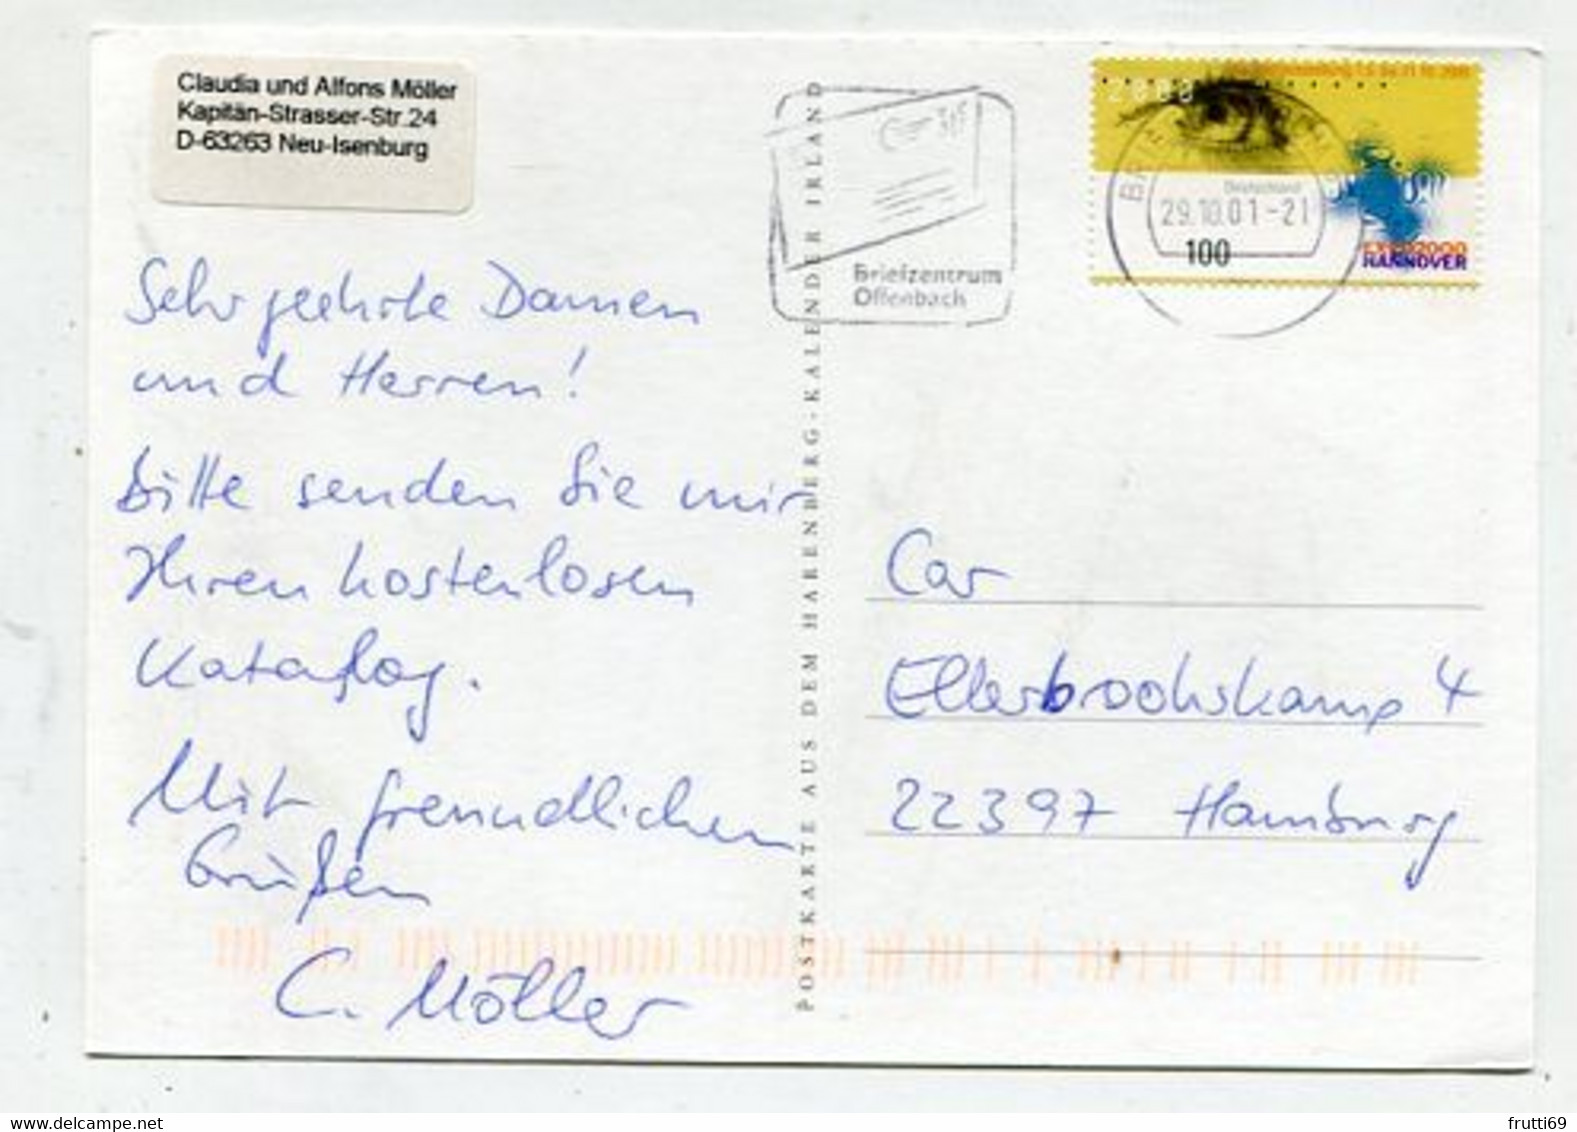 Claudia und Alfons Möller
Kapitän-Strasser-Str.24
D-63263 Neu-Isenburg
Sehr geehrte Damen
und Herren!
Bitte senden Sie mir
Ihren kostenlosen
Katalog.
Mit freundlichen
Grüßen
C. Möller
POSTKARTE AUS DEM HARENBERG-KALENDER IRLAND
Briefzentrum
Offenbach
2000
Deutschland
29.10.01-21
100
EXPO2000
HANNOVER
Car
Ellerbrockskamp 4
22397 Hamburg
frutti69